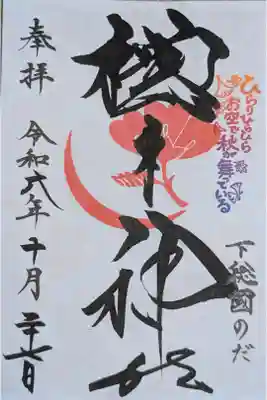 ひらりひらひら
お空で秋が舞っている
下総國のだ
櫻木神社
奉拝
令和六年十月二十七日